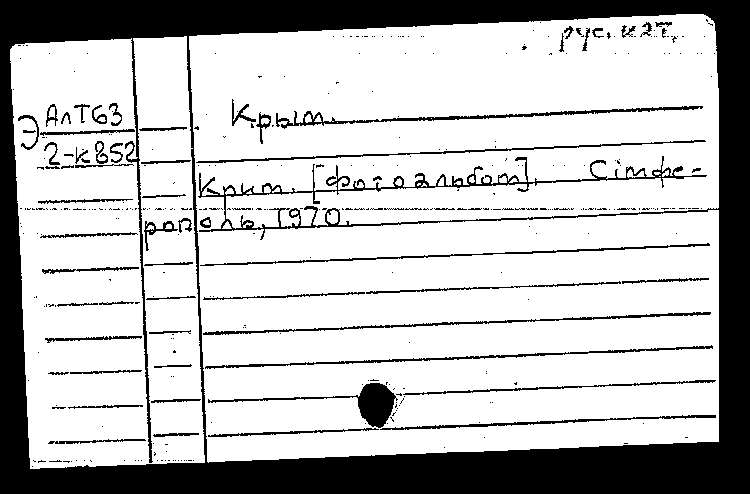 рус. кат.
Э АлТ63
2-к852
Крым.
Крим. [Фотоальбом]. Сімфе-
рополь, 1970.